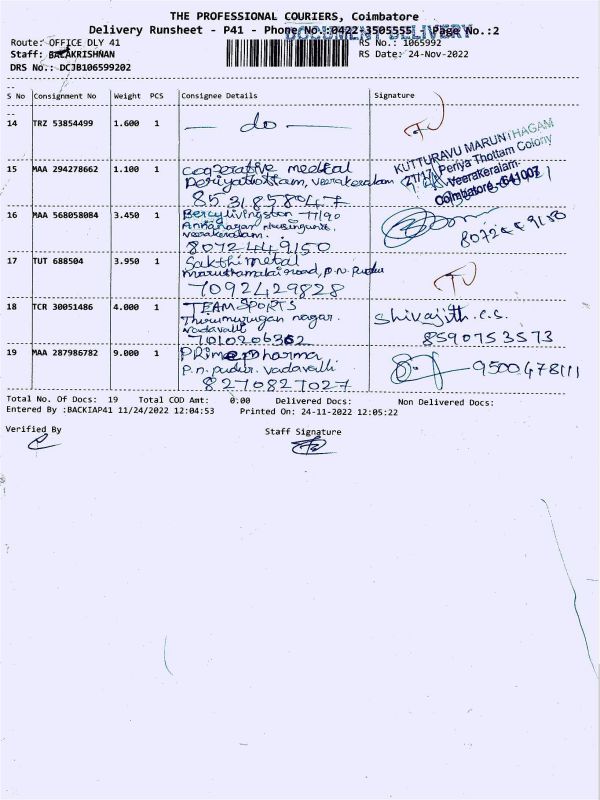 THE PROFESSIONAL COURIERS, Coimbatore
Delivery Runsheet - P41 - Phone No.:0422-3505555 - Page No.:2
DOCUMENT DELIVERY
Route: OFFICE DLY 41
RS No.: 1065992
Staff: BALAKRISHNAN
RS Date: 24-Nov-2022
DRS No.: DCJB106599202
S No Consignment No Weight PCS Consignee Details Signature
14 TRZ 53854499 1.600 1 — do —
15 MAA 294278662 1.100 1 Cooperative medical
Periyathottam, veerakeralam
8531858047
KUTTURAVU MARUNTHAGAM
27/17, Periya Thottam Colony
Veerakeralam
Coimbatore -641007
16 MAA 568058084 3.450 1 Bercylivingston 77/90
Annanagar
veerakeralam.
8072449150
8072449150
17 TUT 688504 3.950 1 Sakthi metal
maruthamalai road, p.n. Pudur
7092429828
18 TCR 30051486 4.000 1 TEAM SPORTS
Thirumurugan nagar.
vadavalli
7010206362
Shivajith.c.s.
8590753573
19 MAA 287986782 9.000 1 PRime pharma
p.n. pudur. vadavalli
8270827027
9500478111
Total No. Of Docs: 19 Total COD Amt: 0.00 Delivered Docs: Non Delivered Docs:
Entered By :BACKIAP41 11/24/2022 12:04:53 Printed On: 24-11-2022 12:05:22
Verified By
Staff Signature